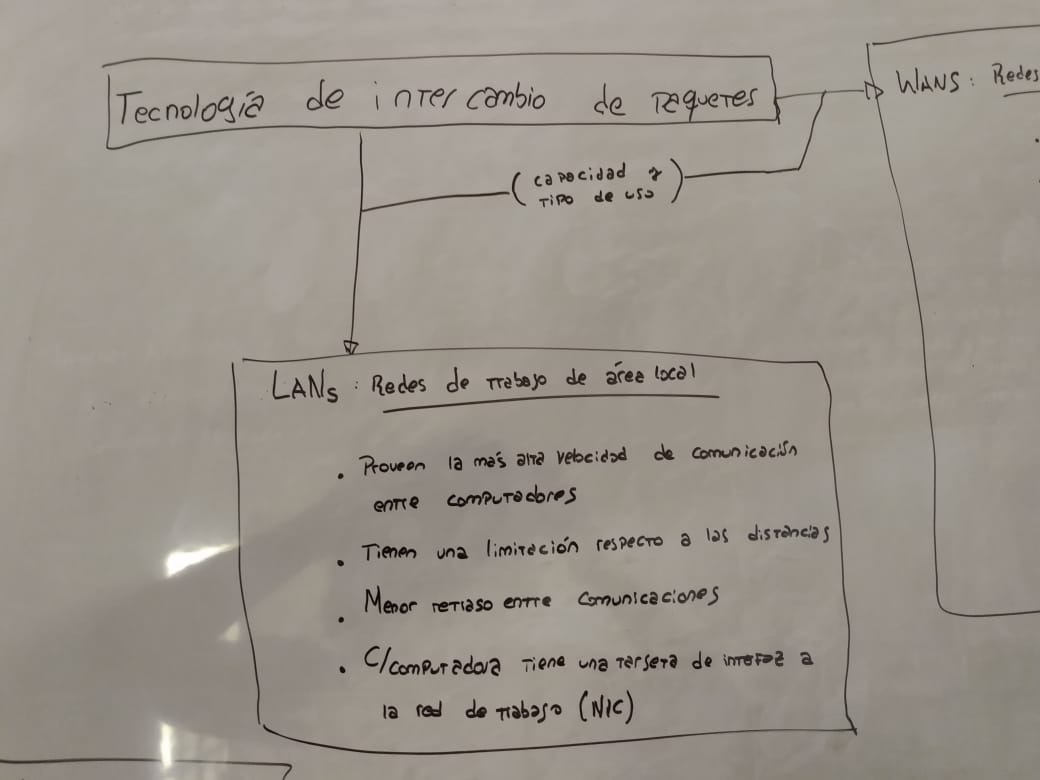 Tecnología de intercambio de paquetes
WANs: Redes
(capacidad y
tipo de uso)
LANs: Redes de trabajo de área local
• Proveen la más alta velocidad de comunicación
entre computadores
• Tienen una limitación respecto a las distancias
• Menor retraso entre comunicaciones
• C/computadora tiene una tarjeta de interfaz a
la red de trabajo (NIC)